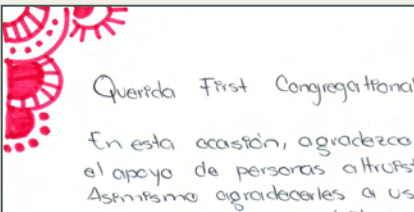 Querida First Congregational
En esta ocasión, agradezco
el apoyo de personas altruist
Asimismo agradecerles a us